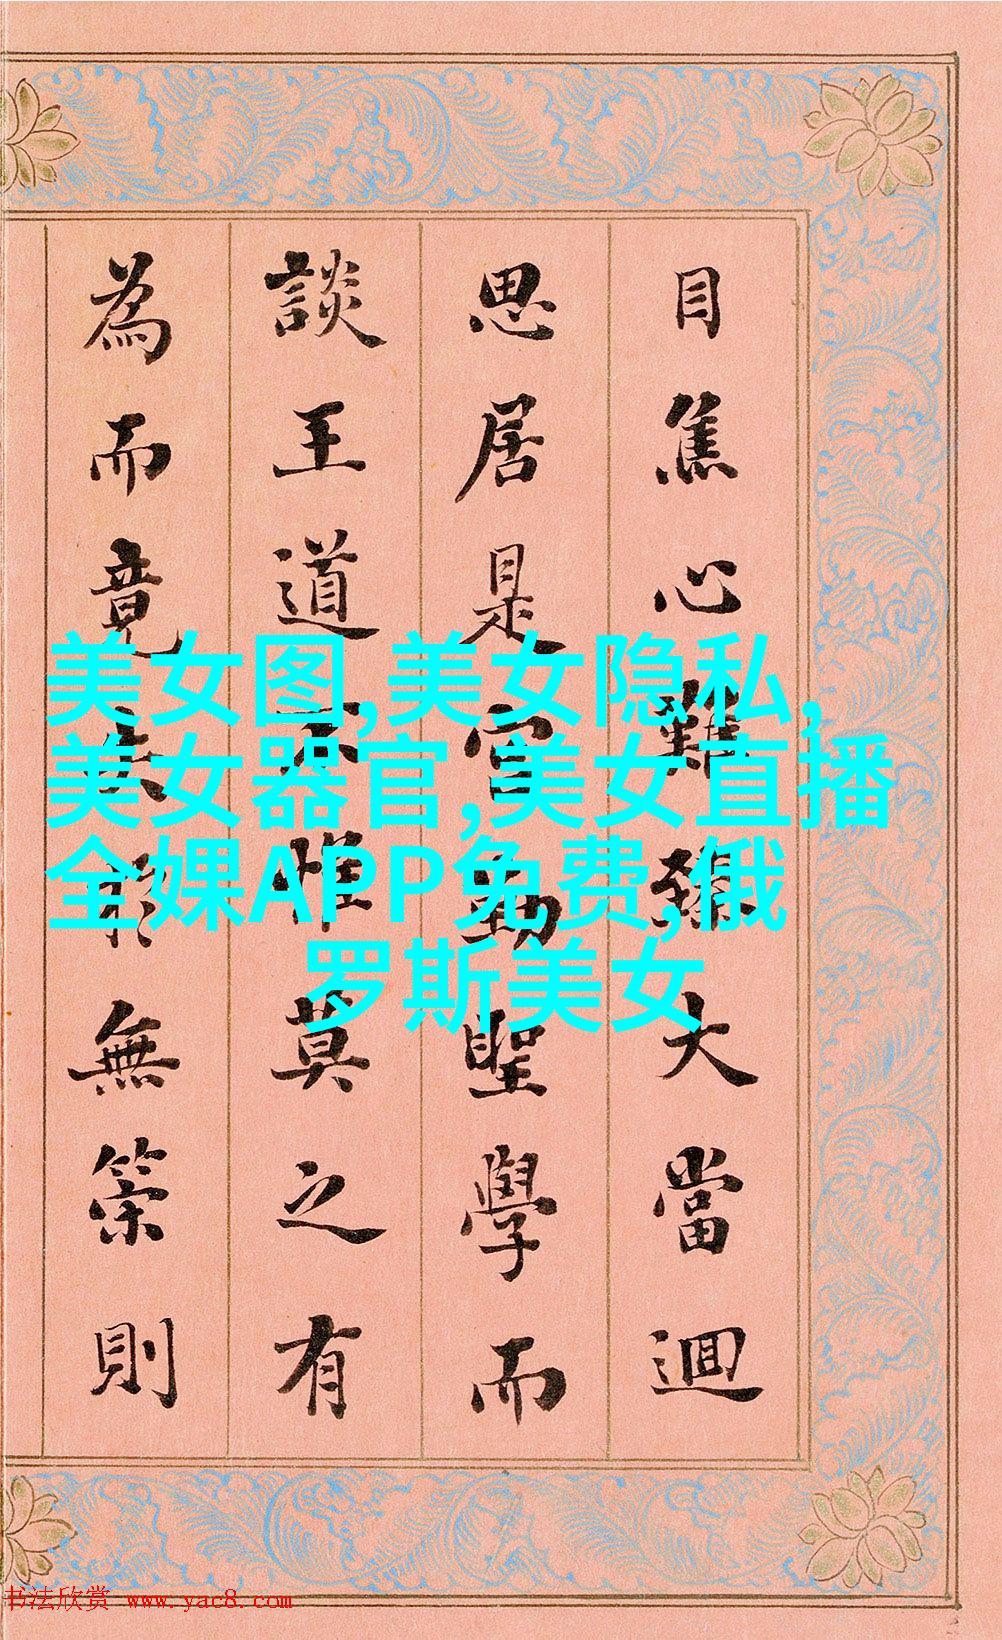 目焦心難臻大當迴
思居是當勤聖學而
談王道不惟莫之有
為而竟無策則
美女图,美女隐私,
美女器官,美女直播
全婐APP免费,俄
罗斯美女
书法欣赏 www.yac8.com